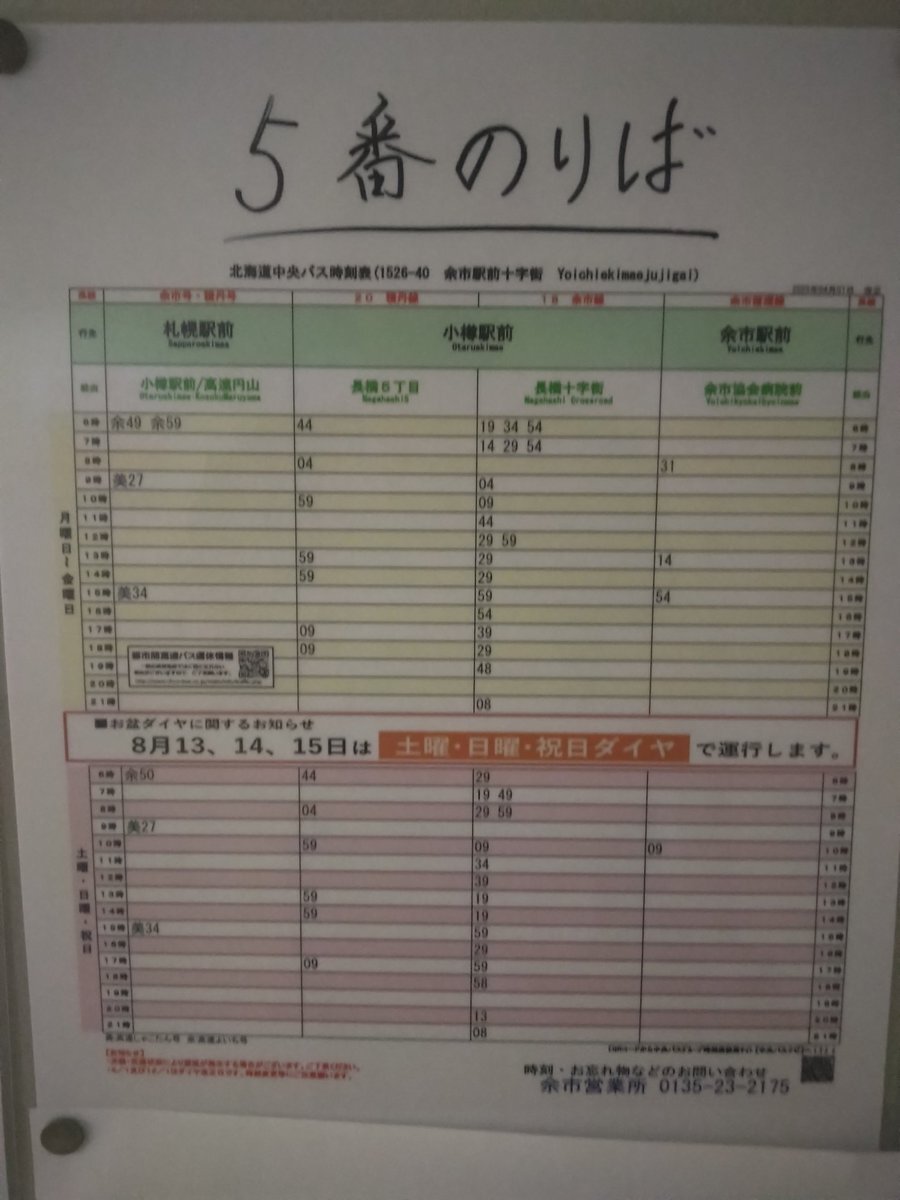 5番のりば
北海道中央バス時刻表(1526-40 余市駅前十字街 Yoichiekimaejujigai)
系統 余市号・積丹号 20 積丹線 18 余市線 系統
行先 札幌駅前 小樽駅前 余市駅前 行先
Sapporoekimae Otaruekimae Yoichiekimae
経由 小樽駅前/高速円山 長橋5丁目 長橋十字街 余市協会病院前 経由
Nagahashi5 Nagahashi Crossroad
月曜日~金曜日
6時 余49 余59 44 19 34 54 6時
7時 14 29 54 7時
8時 04 31 8時
9時 美27 04 9時
10時 59 09 10時
11時 44 11時
12時 29 59 12時
13時 59 29 14 13時
14時 59 29 14時
15時 美34 59 54 15時
16時 54 16時
17時 09 39 17時
18時 09 29 18時
19時 48 19時
20時 20時
21時 08 21時
都市間高速バス運休情報
■お盆ダイヤに関するお知らせ
8月13、14、15日は 土曜・日曜・祝日ダイヤ で運行します。
土曜・日曜・祝日
6時 余50 44 29 6時
7時 19 49 7時
8時 04 29 59 8時
9時 美27 9時
10時 59 09 09 10時
11時 34 11時
12時 39 12時
13時 59 19 13時
14時 59 19 14時
15時 美34 59 15時
16時 29 16時
17時 09 59 17時
18時 58 18時
19時 19時
20時 13 20時
21時 08 21時
美:高速しゃこたん号 余:高速よいち号
【お知らせ】
時刻・お忘れ物などのお問い合わせ
余市営業所 0135-23-2175